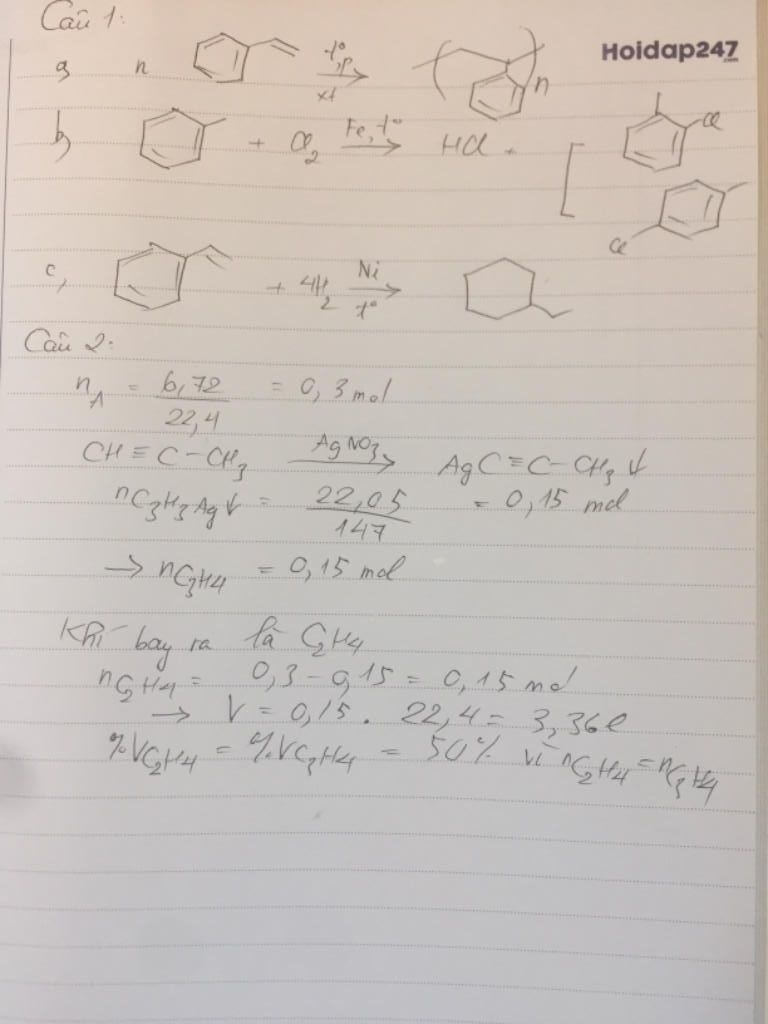 Câu 1:
Hoidap247
a, n t°, p xt n
b, + Cl2 Fe, t° HCl + Cl
Cl
c, + 4H2 Ni t°
Câu 2:
nA = 6,72 / 22,4 = 0,3 mol
CH ≡ C – CH3 AgNO3 → AgC ≡ C – CH3 ↓
nC3H3Ag↓ = 22,05 / 147 = 0,15 mol
→ nC3H4 = 0,15 mol
Khí bay ra là C2H4
nC2H4 = 0,3 – 0,15 = 0,15 mol
→ V = 0,15 . 22,4 = 3,36l
%VC2H4 = %VC3H4 = 50% vì nC2H4 = nC3H4